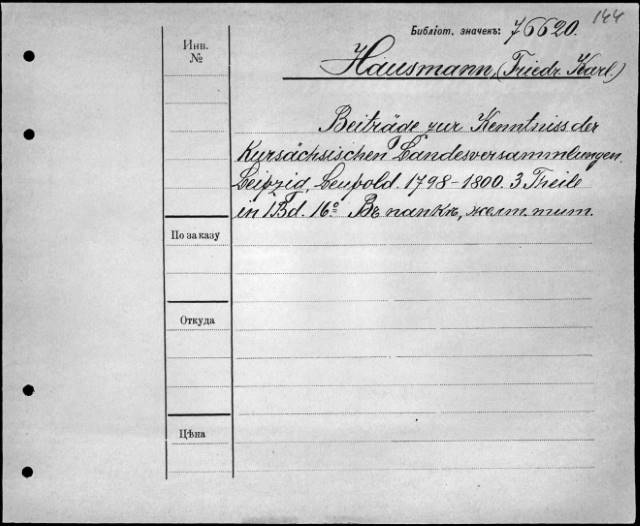 144
Библіот. значекъ: 76620.
Инв.
№
Hausmann, (Friedr. Karl.)
Beiträge zur Kenntniss der
Kursächsischen Landesversammlungen.
Leipzig, Leupold. 1798-1800. 3 Theile
in 1 Bd. 16º Въ папкѣ, желт. тит.
По заказу
Откуда
Цѣна